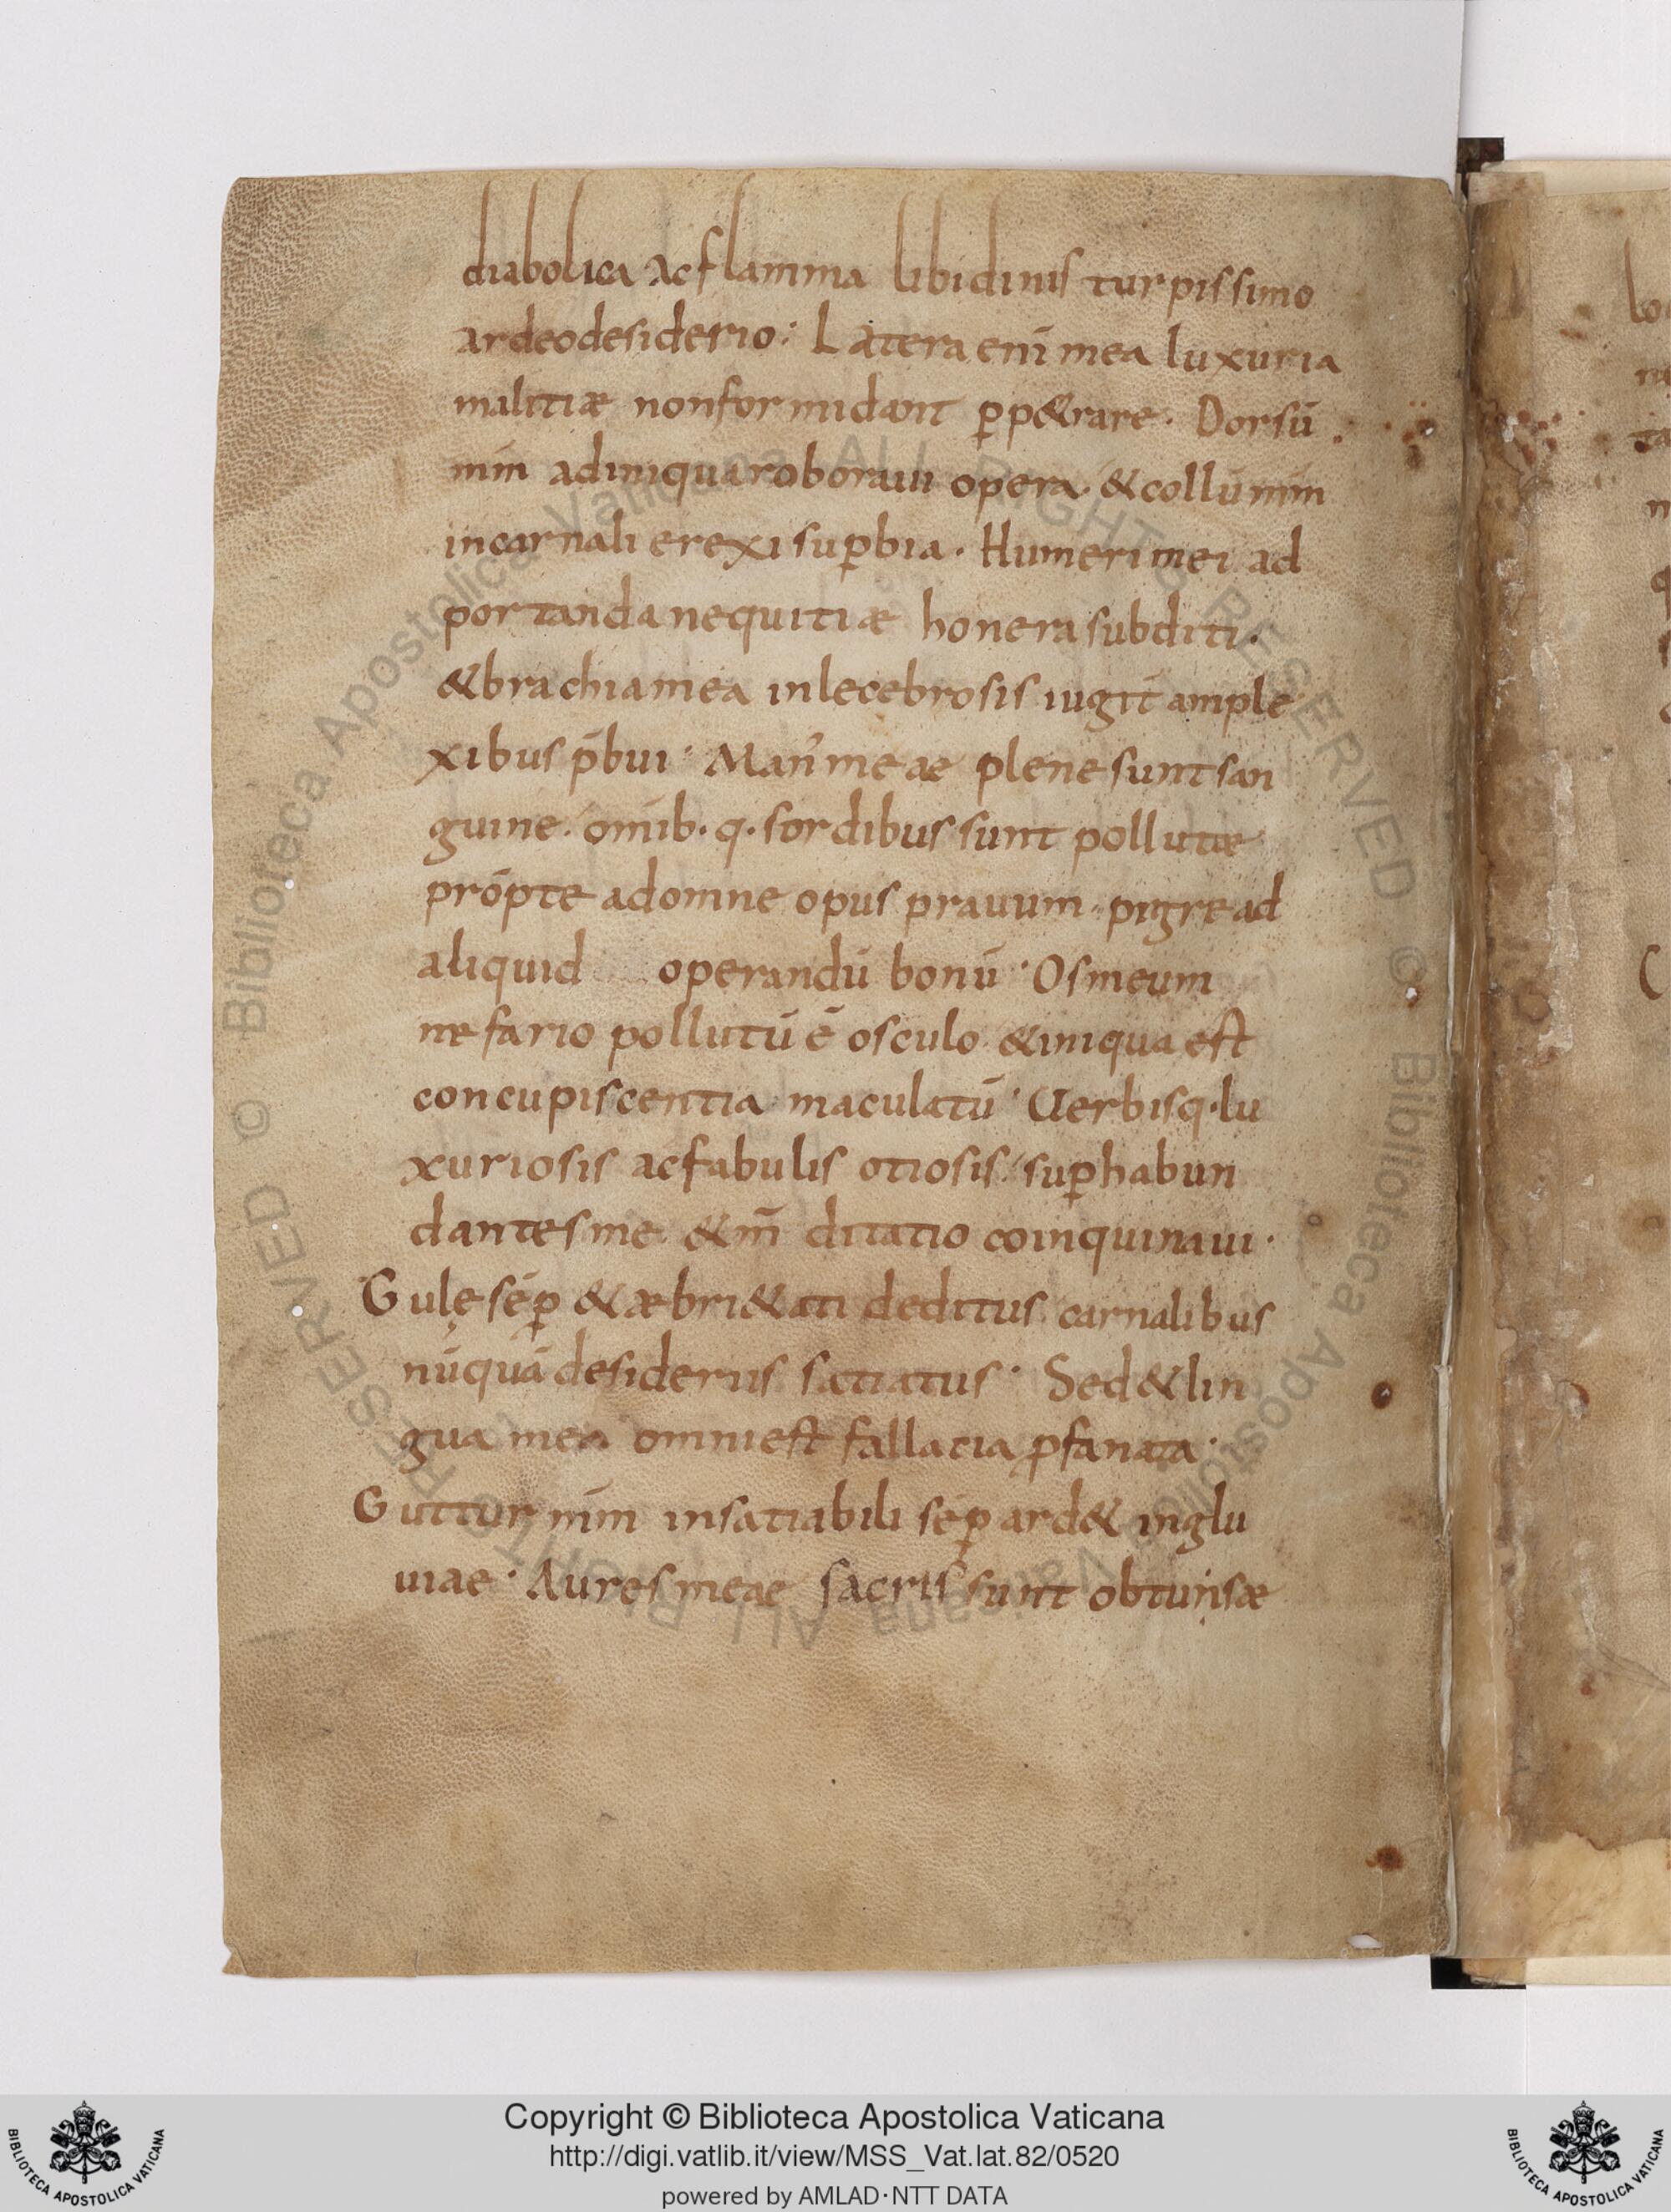 diabolica ac flamma libidinis turpissimo
ardeo desiderio. Latera eni mea luxuria
malitiæ non formidant ꝑp&rare. Dorsū
mm̄ ad iniqua roboraui opera. & collū mm̄
in carnali erexi suꝑbia. Humeri mei ad
portanda nequitiæ honera subditi.
& brachia mea inlecebrosis iugit̄ ample
xibus p̄bui. Man' meae plene sunt san
guine. om̄ib. q. sordibus sunt pollutæ
prōpte ad omne opus prauum. pigre ad
aliquid operandū bonū. Os meum
nefario pollutū ē osculo. & iniqua est
concupiscentia maculatū. Uerbisq. lu
xuriosis ac fabulis otiosis. suꝑhabun
dantes me. & m̄ ditatio coinquinaui.
Gulę séꝑ & æbri&ati deditus. carnalibus
nūquā desideriis satiatus. Sed & lin
gua mea omni est fallacia ꝓfanata.
Guttur mm̄ insatiabili séꝑ ard& inglu
uiae. Aures meae sacris sunt obtunsæ
Copyright © Biblioteca Apostolica Vaticana
http://digi.vatlib.it/view/MSS_Vat.lat.82/0520
powered by AMLAD·NTT DATA
BIBLIOTECA APOSTOLICA VATICANA
BIBLIOTECA APOSTOLICA VATICANA